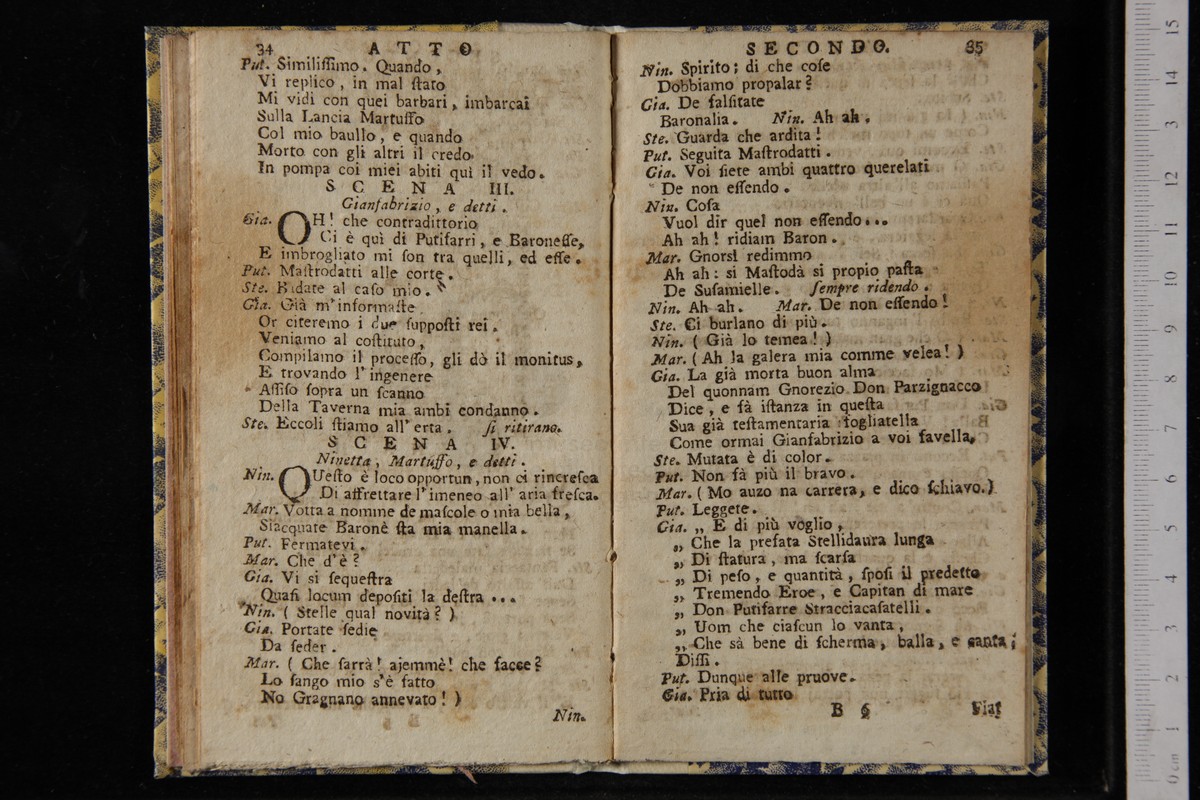 34 ATTO
Put. Similiſſimo. Quando,
Vi replico, in mal ſtato
Mi vidi con quei barbari, imbarcai
Sulla Lancia Martuffo
Col mio baullo, e quando
Morto con gli altri il credo
In pompa coi miei abiti quì il vedo.
SCENA III.
Gianfabrizio, e detti.
Gia. OH! che contradittorio
Ci è quì di Putifarri, e Baroneſſe,
E imbrogliato mi ſon tra quelli, ed eſſe.
Put. Maſtrodatti alle corte.
Ste. Badate al caſo mio.
Gia. Già m'informaſte
Or citeremo i due ſuppoſti rei,
Veniamo al coſtituto,
Compilamo il proceſſo, gli dò il monitus,
E trovando l'ingenere
Aſſiſo ſopra un ſcanno
Della Taverna mia ambi condanno.
Ste. Eccoli ſtiamo all'erta. ſi ritirano.
SCENA IV.
Ninetta, Martuffo, e detti.
Nin. QUeſto è loco opportun, non ci rincreſca
Di affrettare l'imeneo all'aria freſca.
Mar. Votta a nomme de maſcole o mia bella,
Sciacquate Baronè ſta mia manella.
Put. Fermatevi.
Mar. Che d'è?
Gia. Vi si ſequeſtra
Quaſi locum depoſiti la deſtra...
Nin. (Stelle qual novità?)
Gia. Portate ſedie
Da ſeder.
Mar. (Che ſarrà! ajemmè! che facce?
Lo ſango mio s'è fatto
No Gragnano annevato!)
Nin.
SECONDO. 35
Nin. Spirito; di che coſe
Dobbiamo propalar?
Gia. De falſitate
Baronalia. Nin. Ah ah.
Ste. Guarda che ardita!
Put. Seguita Maſtrodatti.
Gia. Voi ſiete ambi quattro querelati
De non eſſendo.
Nin. Coſa
Vuol dir quel non eſſendo...
Ah ah! ridiam Baron.
Mar. Gnorsì redimmo
Ah ah: si Maſtodà si propio paſta
De Suſamielle. ſempre ridendo.
Nin. Ah ah. Mar. De non eſſendo!
Ste. Ci burlano di più.
Nin. (Già lo temea!)
Mar. (Ah la galera mia comme velea!)
Gia. La già morta buon alma
Del quonnam Gnorezio Don Parzignacco
Dice, e fà iſtanza in queſta
Sua già teſtamentaria ſfogliatella
Come ormai Gianfabrizio a voi favella.
Ste. Mutata è di color.
Put. Non fà più il bravo.
Mar. (Mo auzo na carrera, e dico ſchiavo.)
Put. Leggete.
Gia. „ E di più voglio,
„ Che la prefata Stellidaura lunga
„ Di ſtatura, ma ſcarſa
„ Di peſo, e quantità, ſpoſi il predetto
„ Tremendo Eroe, e Capitan di mare
„ Don Putifarre Stracciacaſatelli.
„ Uom che ciaſcun lo vanta,
„ Che sà bene di ſcherma, balla, e canta;
Diſſi.
Put. Dunque alle pruove.
Gia. Pria di tutto
B 5 Fiat
15
14
3
12
11
10
9
8
7
6
5
4
3
2
1
0 cm